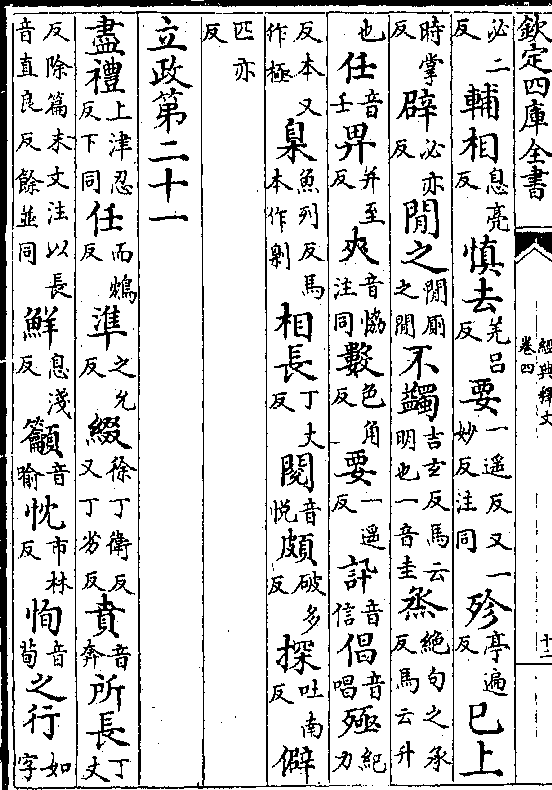 欽定四庫全書 經典釋文 卷四 十二
必二反 輔相息亮反 慎去羌呂反 要一遥反又一妙反注同 殄亭遍反 巳上
時掌反 辟必亦反 閒之閒厠之閒 不蠲吉玄反馬云明也一音圭 烝絶句之承反馬云升
也 任音壬 畀并至反 夾音協注同 數色角反 要一遥反 訊音信 倡音唱 殛紀力
反本又作極 臬魚列反馬本作㓷 相長丁丈反 閱音悦 頗破多反 探吐南反 僻
匹亦反
立政第二十一
盡禮上津忍反下同 任而鴆反 準之允反 綴徐丁衛反又丁劣反 賁音奔 所長丁丈
反除篇末文注以長音直良反餘並同 鮮息淺反 籲音喻 忱市林反 恂音荀 之行如字